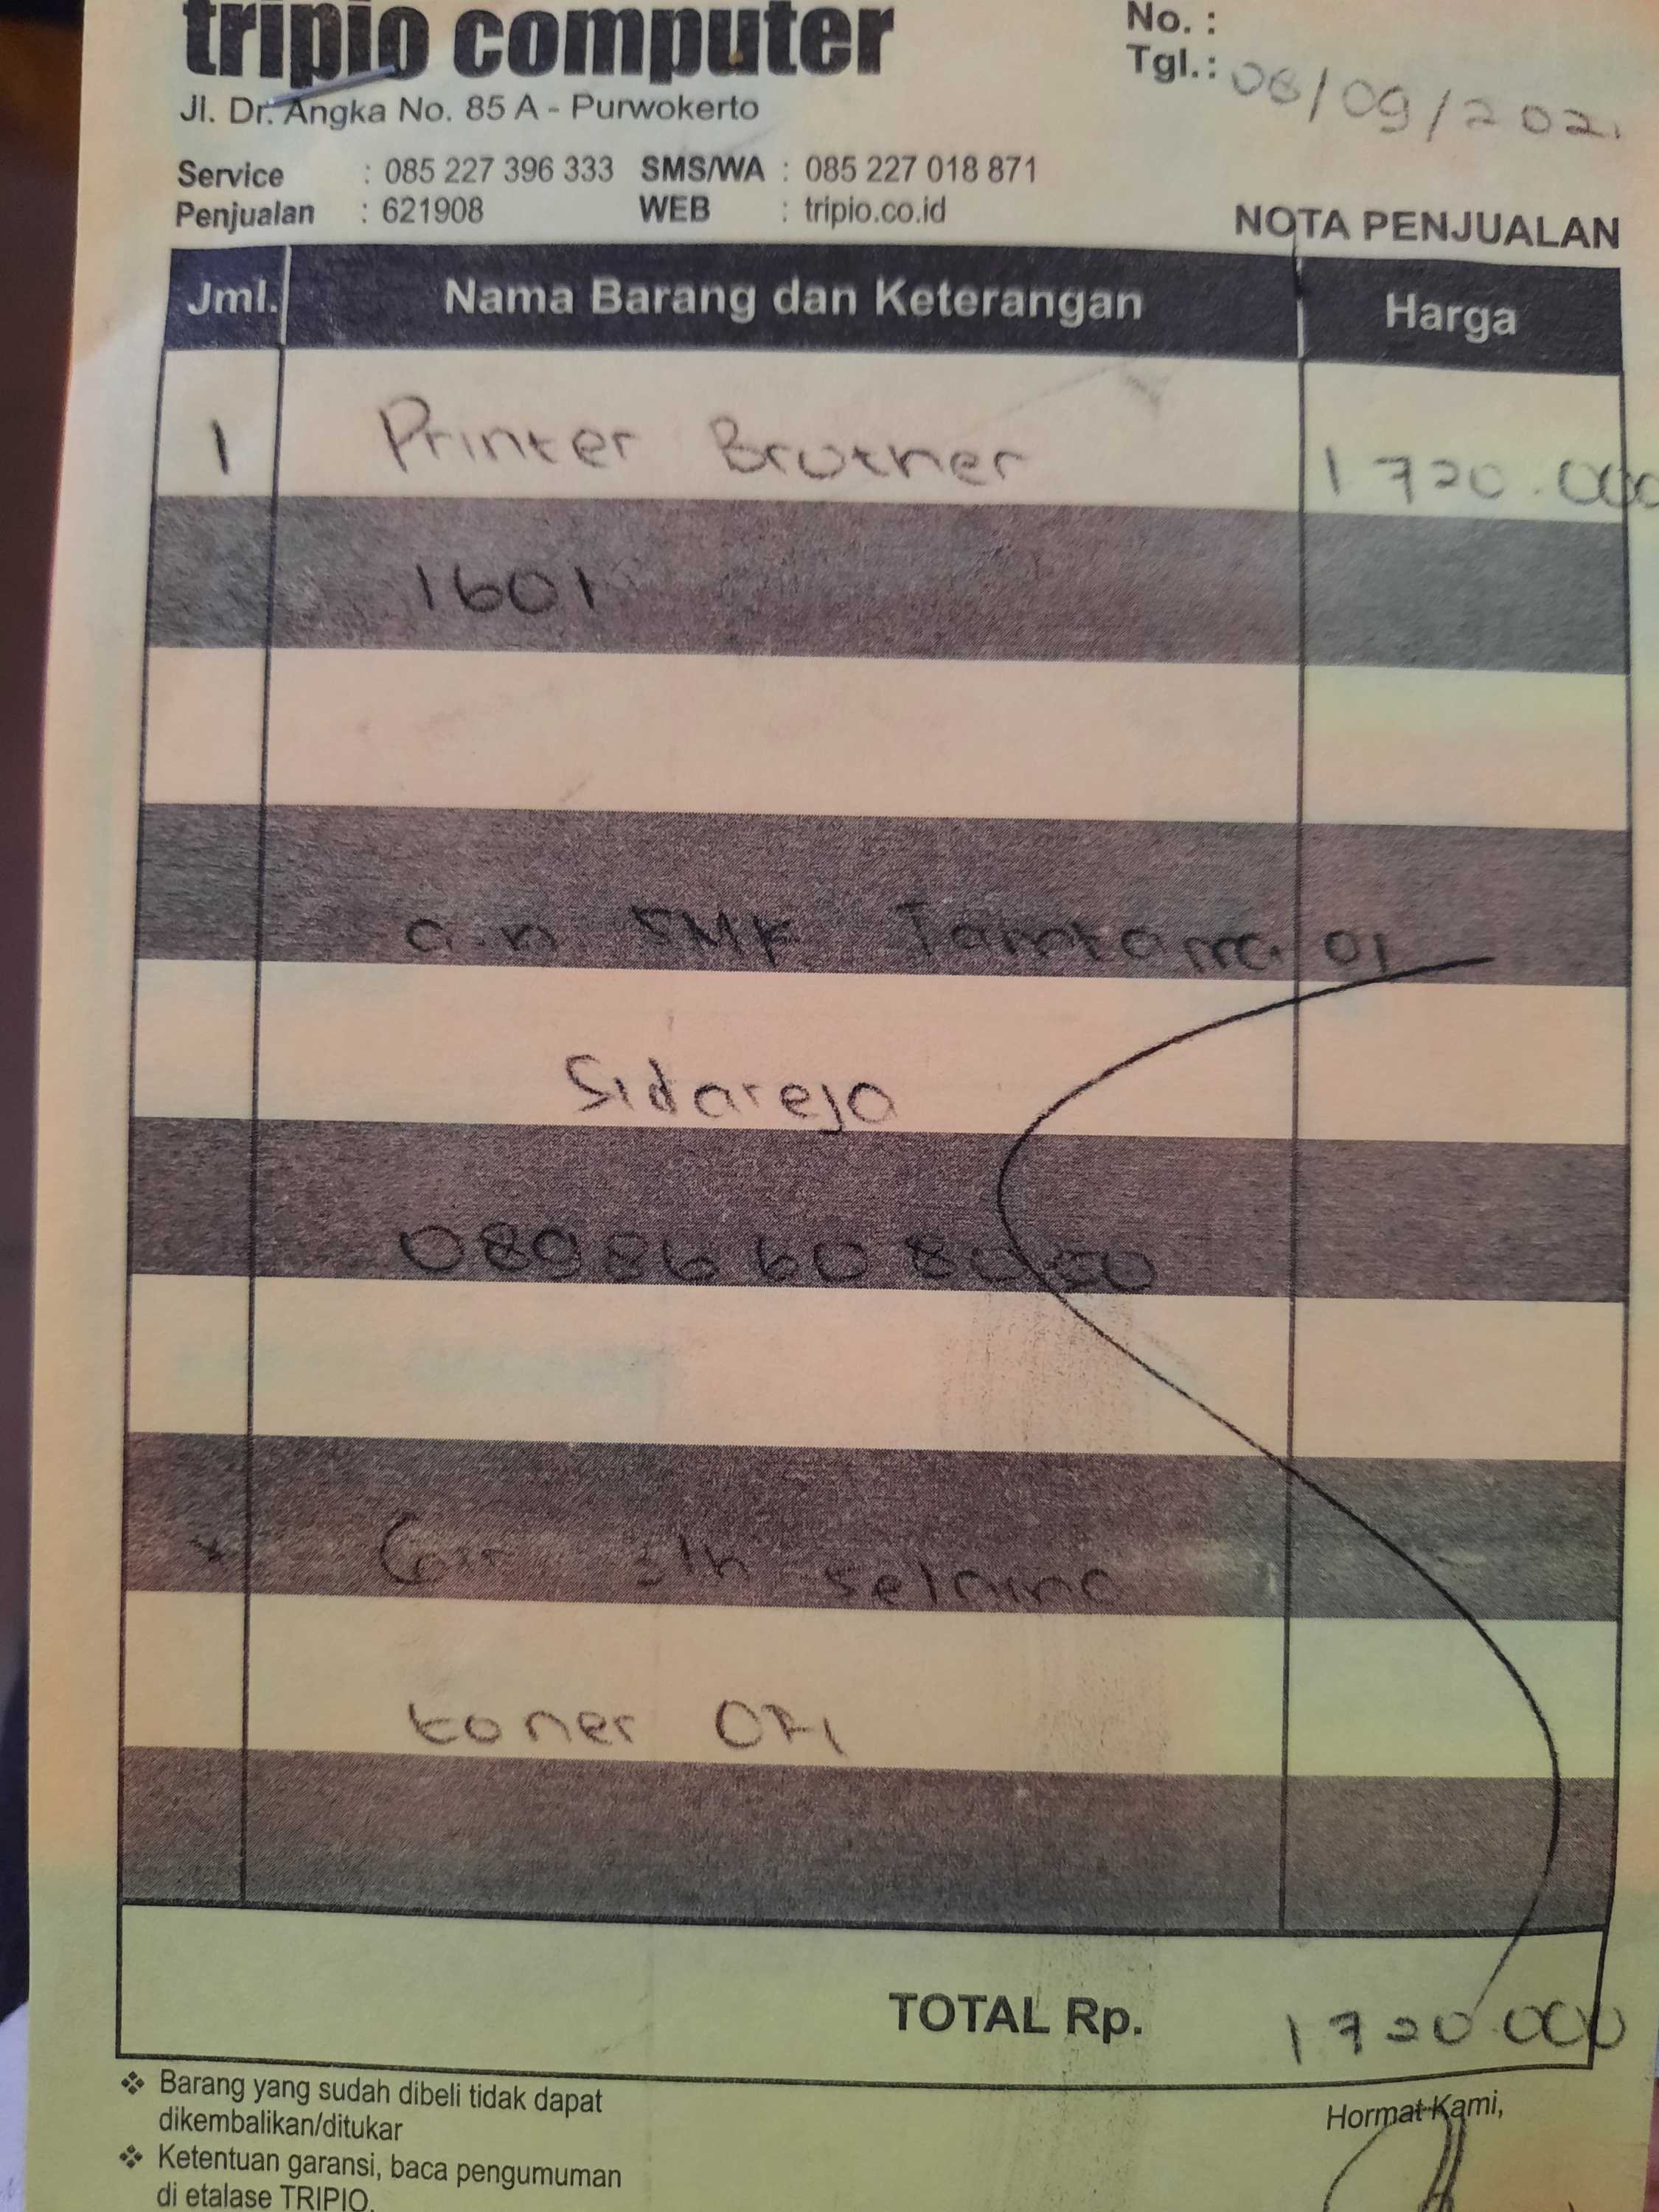 tripio computer
Jl. Dr. Angka No. 85 A - Purwokerto
No. :
Tgl.: 08/09/2021
Service : 085 227 396 333 SMS/WA : 085 227 018 871
Penjualan : 621908 WEB : tripio.co.id
NOTA PENJUALAN
Jml. Nama Barang dan Keterangan Harga
1 Printer Brother 1720.000
1601
a.n SMK Tamtama 01
Sidareja
* Gar 3th selama
toner ORI
TOTAL Rp. 1720.000
❖ Barang yang sudah dibeli tidak dapat
dikembalikan/ditukar
❖ Ketentuan garansi, baca pengumuman
di etalase TRIPIO.
Hormat Kami,